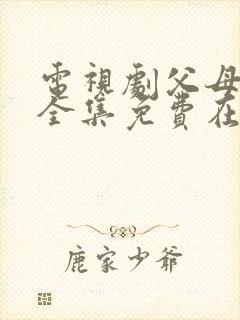 電視劇父母
全集免費在
鹿家少爺